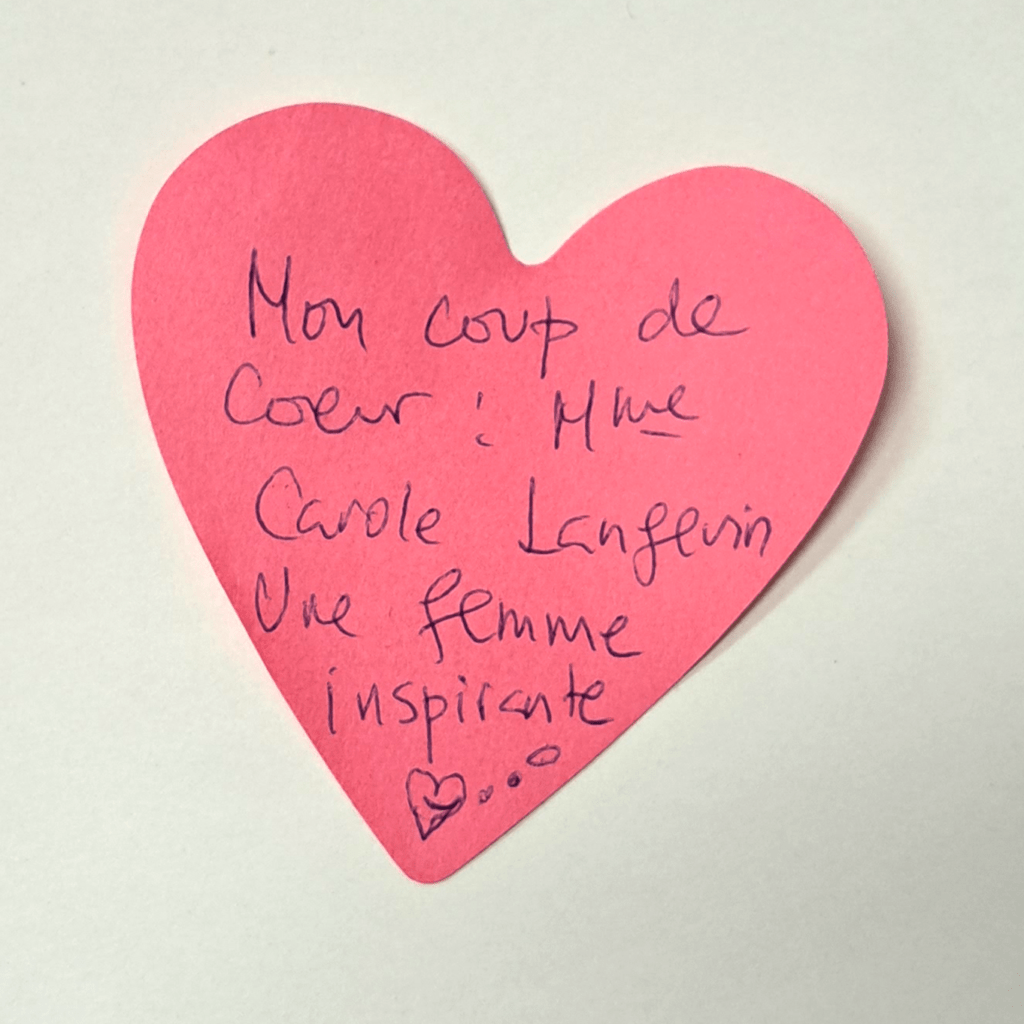 Mon coup de
Coeur : Mme
Carole Langevin
Une femme
inspirante